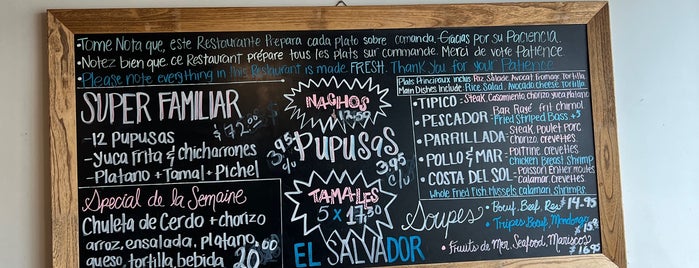 • Tome Nota que, este Restaurante Prepara cada plato sobre comanda. Gracias por su Paciencia.
• Notez bien que ce Restaurant prépare tous les plats sur commande. Merci de votre Patience.
• Please note everything in this Restaurant is made FRESH. Thank You for your Patience
SUPER FAMILIAR
$72.00
- 12 Pupusas
- Yuca Frita & chicharrones
- Platano + Tamal + Pichel
Special de la Semaine
Chuleta de Cerdo + chorizo
arroz, ensalada, platano,
queso, tortilla, bebida
20.00
NACHOS
$12.50
Pupusas
3.95 c/u
3.95 c/u
TAMALES
5 x 17.50
EL SALVADOR
Plats Principaux inclus Riz, Salade, Avocat, Fromage, Tortilla
Main Dishes Include: Rice, Salad, Avocado, Cheese, Tortilla
• TIPICO - Steak, Casamiento, Chorizo, Yuca, Platano
• PESCADOR - Bar Rayé frit
Fried Striped Bass +5
• PARRILLADA - Steak, Poulet, Porc
Chorizo, crevettes.
• POLLO & MAR - Poitrine, crevettes
Chicken Breast Shrimp
• COSTA DEL SOL - Poisson Entier, Moules
Calamar, crevettes.
Whole Fried Fish, Mussels, calamari, shrimps
Soupes
• Boeuf, Beef, Res $14.95
• Tripes Boeuf, Mondongo
• Fruits de Mer, Seafood, Mariscos $16.95